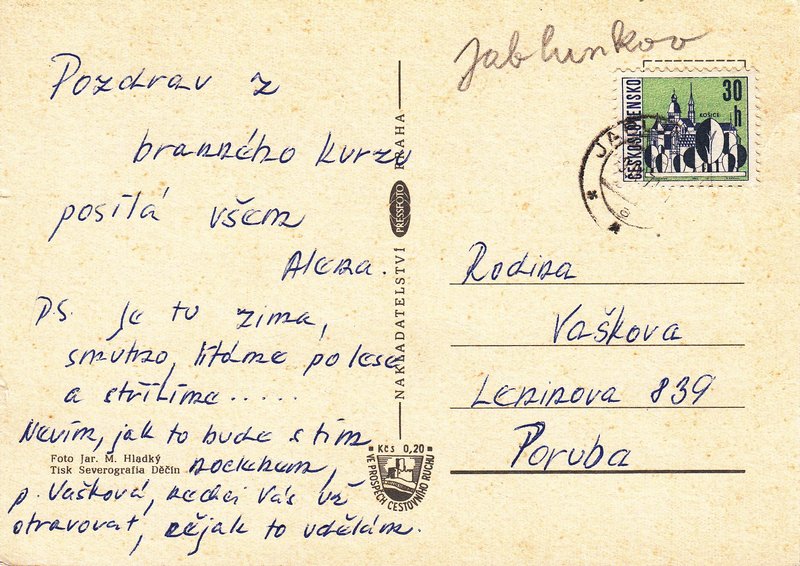 Jablunkov
Pozdrav z
branného kurzu
posílá všem
Alena.
PS. Je tu zima,
smutno, lítáme po lese
a střílíme.....
Nevím, jak to bude s tím
noclehem,
p. Vašková, nechci Vás už
otravovat, nějak to udělám.
Foto Jar. M. Hladký
Tisk Severografia Děčín
NAKLADATELSTVÍ PRESSFOTO PRAHA
Kčs 0,20
VE PROSPĚCH CESTOVNÍHO RUCHU
ČESKOSLOVENSKO
30 h
KOŠICE
Rodina
Vaškova
Leninova 839
Poruba